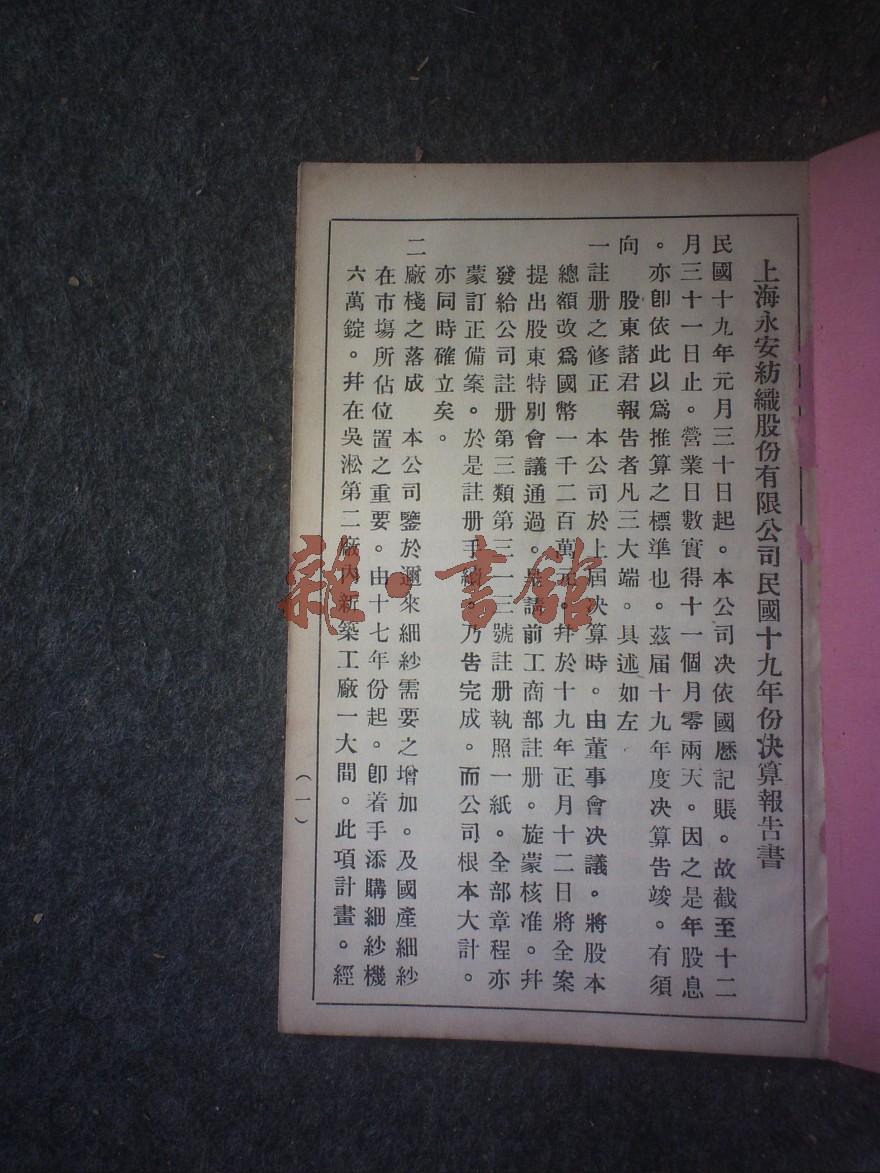 上海永安紡織股份有限公司民國十九年份決算報告書
民國十九年元月三十日起。本公司決依國歷記賬。故截至十二
月三十一日止。營業日數實得十一個月零兩天。因之是年股息
。亦卽依此以爲推算之標準也。茲届十九年度決算告竣。有須
向 股東諸君報告者凡三大端。具述如左
一註册之修正 本公司於上屆決算時。由董事會決議。將股本
總額改爲國幣一千二百萬元。幷於十九年正月十二日將全案
提出股東特別會議通過。呈請前工商部註册。旋蒙核准。幷
發給公司註册第三類第三一三號註册執照一紙。全部章程亦
蒙訂正備案。於是註册手續。乃告完成。而公司根本大計。
亦同時確立矣。
二廠棧之落成 本公司鑒於邇來細紗需要之增加。及國產細紗
在市塲所佔位置之重要。由十七年份起。卽着手添購細紗機
六萬錠。幷在吳淞第二廠內新築工廠一大間。此項計畫。經
（一）
雜·書館